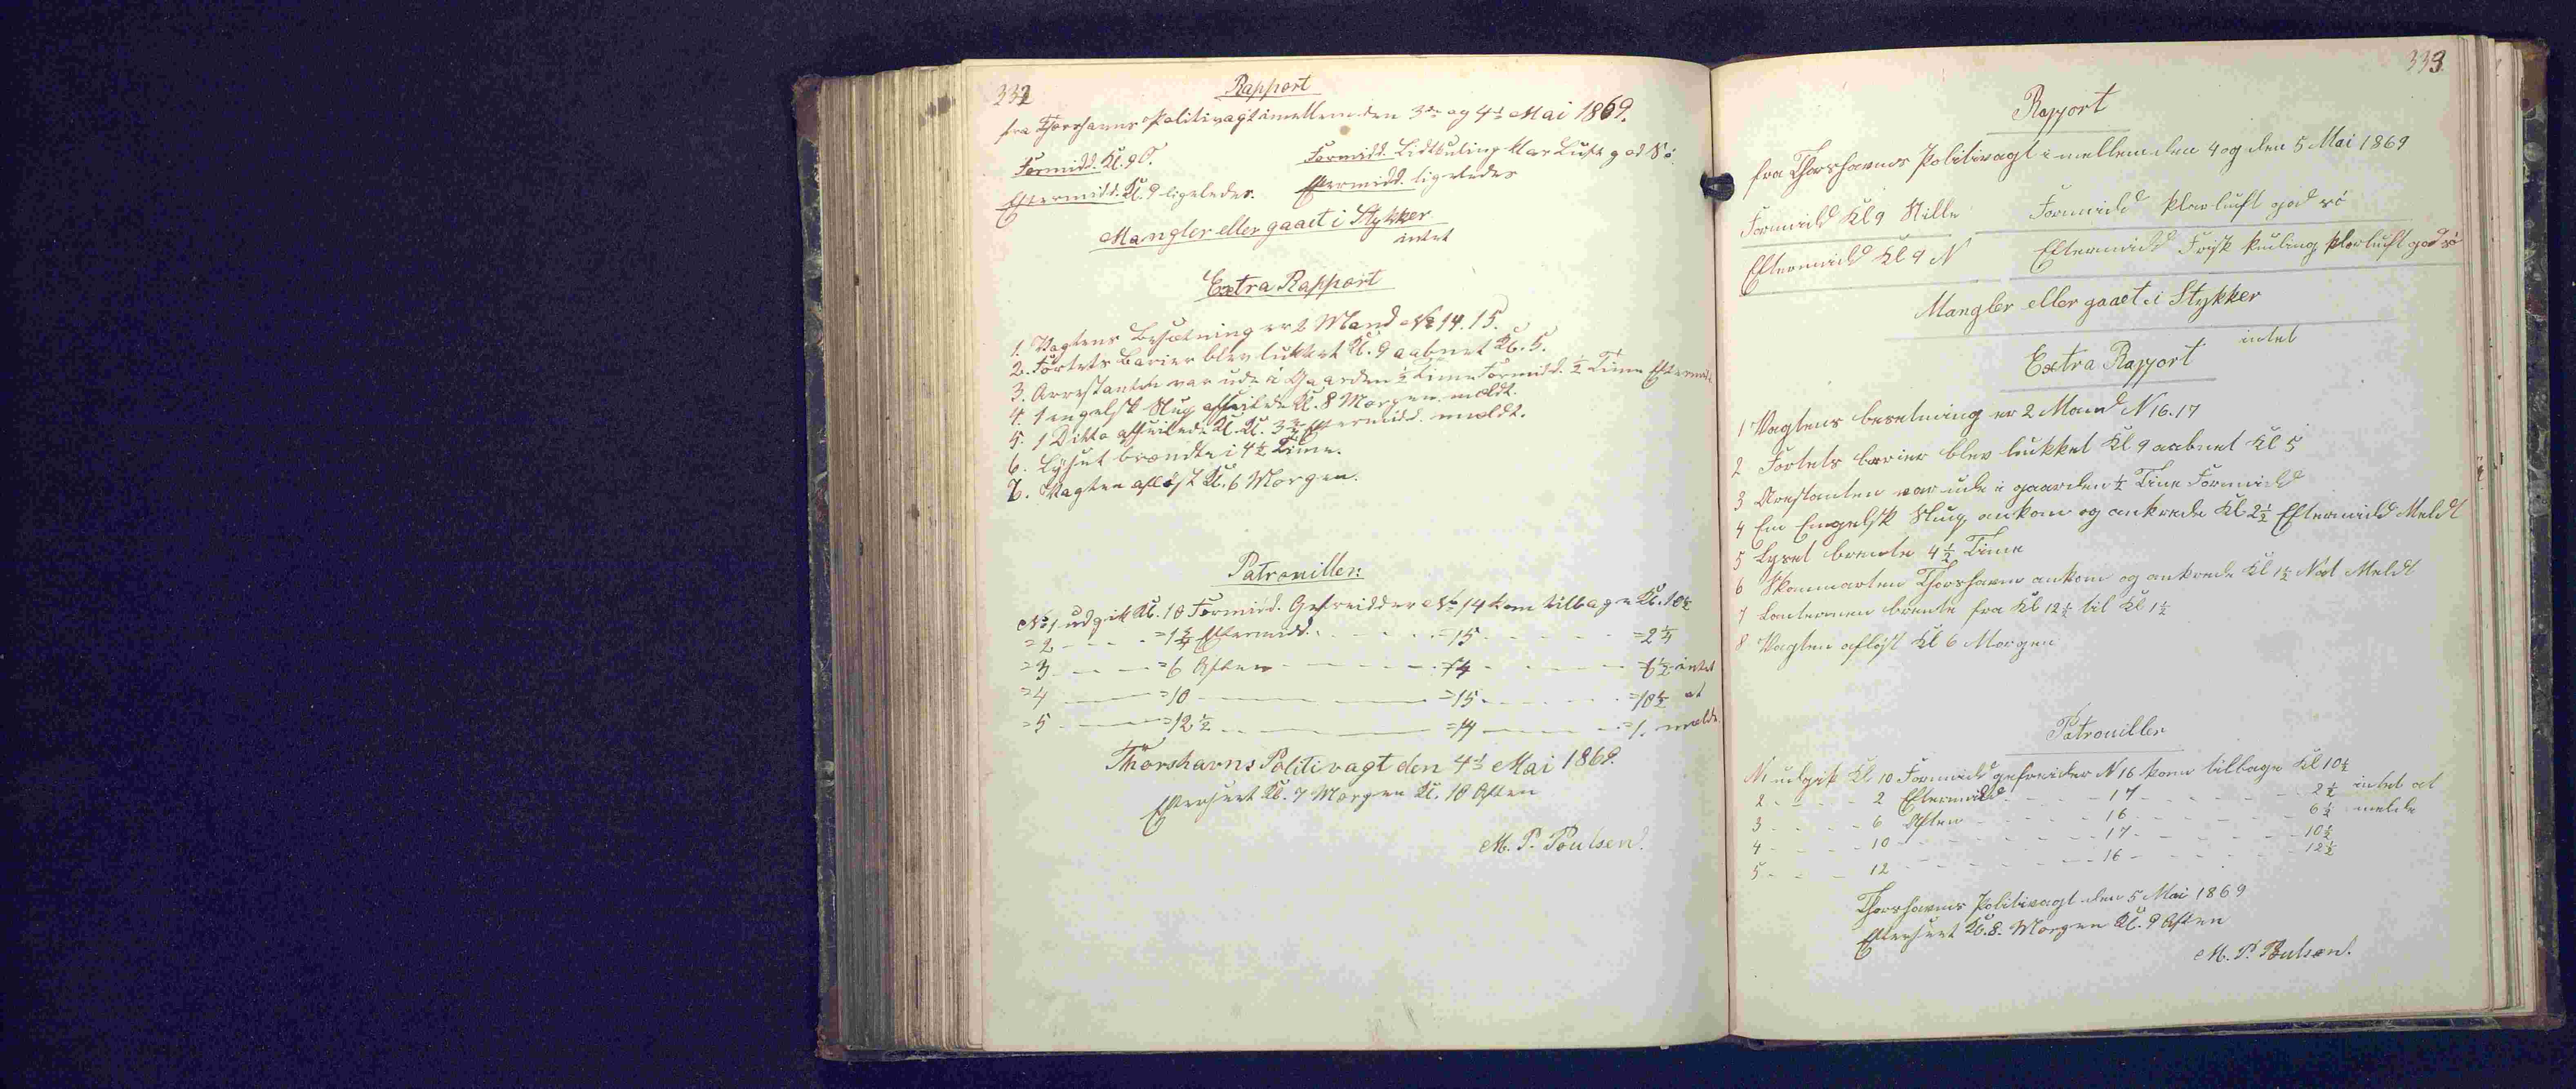 332
Rapport
fra Thorshavns Politivagt imellem den 3die og 4de Mai 1869.
Formidd. Kl. 9 O. Formidd. Lidt Kuling klar Luft god Sö.
Eftermidd. Kl. 9 ligeledes. Eftermidd. ligeledes
Mangler eller gaaet i Stykker
intet
Extra Rapport
1. Vagtens Besætning er 2 Mand No 14. 15.
2. Fortets Barier blev lukket Kl. 9 aabnet Kl. 5.
3. Arrestanten var ude i Gaarden ½ Time Formidd. ½ Time Eftermidd.
4. 1 engelsk Slup afseilede Kl. 8 Morgen. meldt.
5. 1 Ditto afseilede Kl. Kl. 3¾ Eftermidd. meldt.
6. Lyset brændte i 4½ Time.
7. Vagten aflöst Kl. 6 Morgen.
Patrouiller:
No 1 udgik Kl. 10 Formidd. Gefreidder No 14 kom tilbage Kl. 10½
= 2 - - - = 1¾ Eftermidd. - - - = 15 - - - = 2¼
= 3 - - - = 6 Aften - - - = 14 - - - = 6½ intet
= 4 - - - = 10 - - - = 15 - - - = 10½ at
= 5 - - - = 12½ - - - = 14 - - - = 1. melde
Thorshavns Politivagt den 4de Mai 1869.
Efterseet Kl. 7 Morgen Kl. 10 Aften
M. P. Poulsen.
333
Rapport
fra Thorshavns Politivagt imellem den 4 og den 5 Mai 1869
Formidd Kl 9 Stille Formidd klarluft god sö
Eftermidd Kl 9 N Eftermidd Frisk kuling klarluft god sö
Mangler eller gaaet i Stykker
intet
Extra Rapport
1 Vagtens besetning er 2 Mand N 16. 17
2 Fortets barier blev lukket Kl 9 aabnet Kl 5
3 Arestanten var ude i gaarden ½ Time Formidd
4 Em Engelsk Slup ankom og ankrede Kl 2½ Eftermidd Meldt
5 Lyset brente 4½ Time
6 Skonnarten Thorshavn ankom og ankrede Kl 1½ Nat Meldt
7 Lanternen brente fra Kl 12½ til Kl 1½
8 Vagten aflöst Kl 6 Morgen
Patrouiller
N 1 udgik Kl 10 Formidd gefreider N 16 kom tilbage Kl 10½
2 - - - 2 Eftermidd - - - 17 - - - 2½ intet at
3 - - - 6 Aften - - - 16 - - - 6½ melde
4 - - - 10 - - - 17 - - - 10½
5 - - - 12 - - - 16 - - - 12½
Thorshavns Politivagt den 5 Mai 1869
Efterseet Kl. 8. Morgen Kl. 9 Aften
M. P. Poulsen.